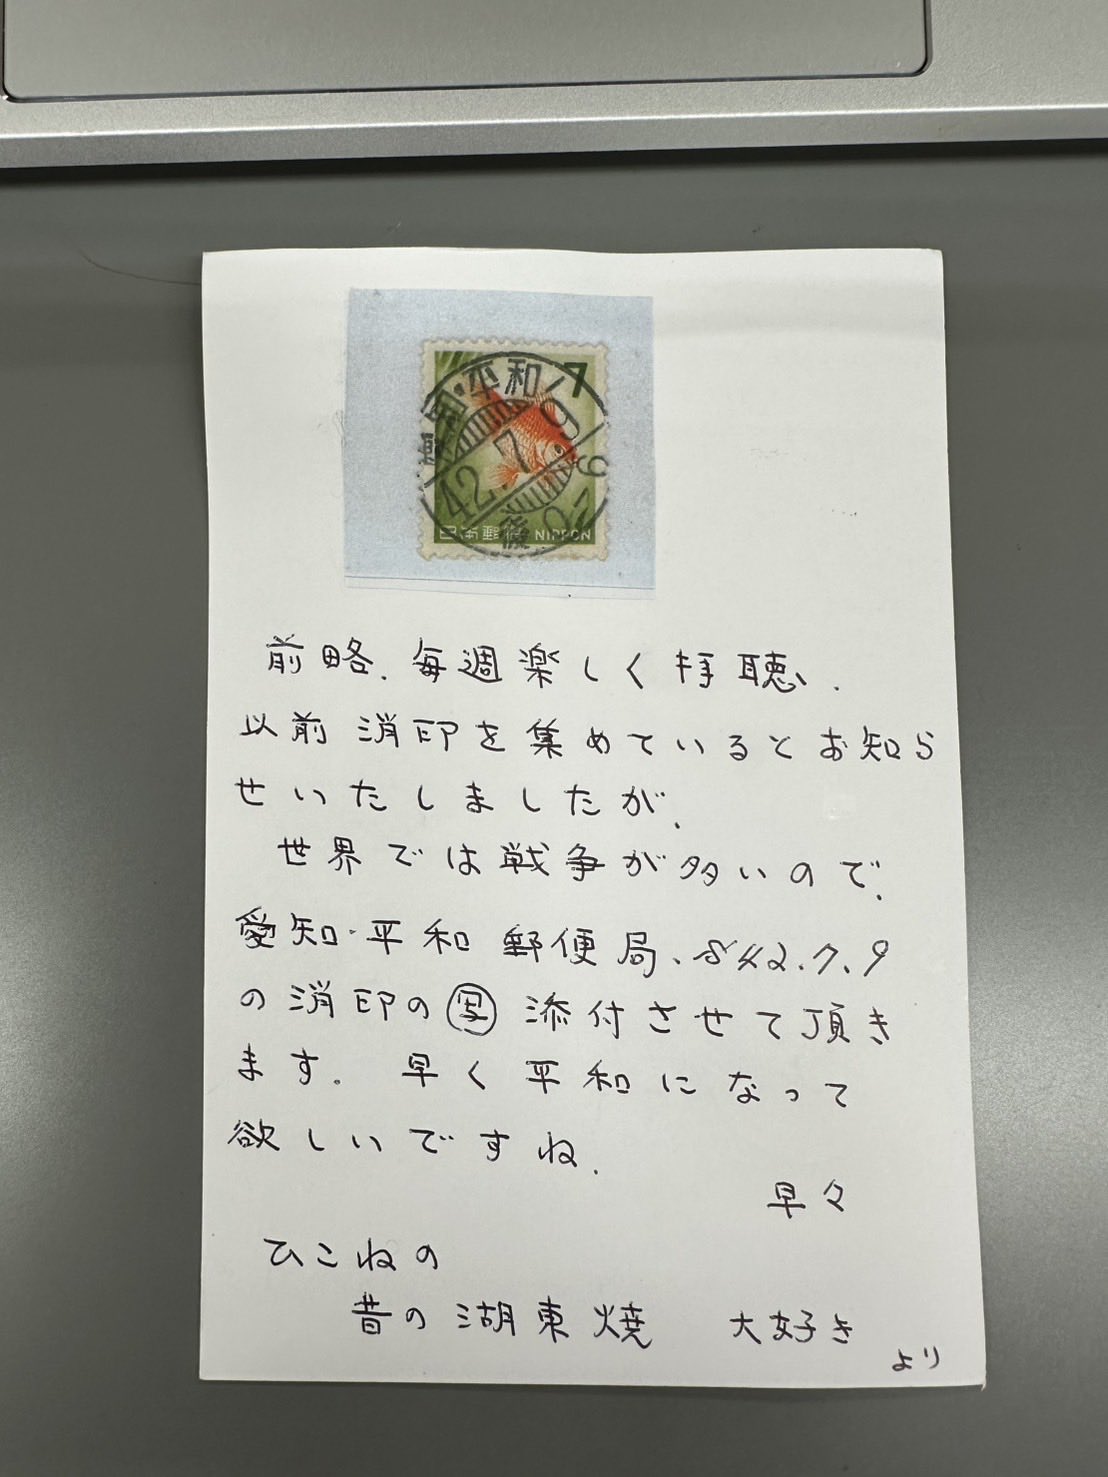 平和
7
42.7.9
後0-6
日本郵便 NIPPON
前略、毎週楽しく拝聴、
以前消印を集めているとお知ら
せいたしましたが、
世界では戦争が多いので、
愛知・平和郵便局、S42.7.9
の消印の㊢添付させて頂き
ます。早く平和になって
欲しいですね、
早々
ひこねの
昔の湖東焼 大好き
より